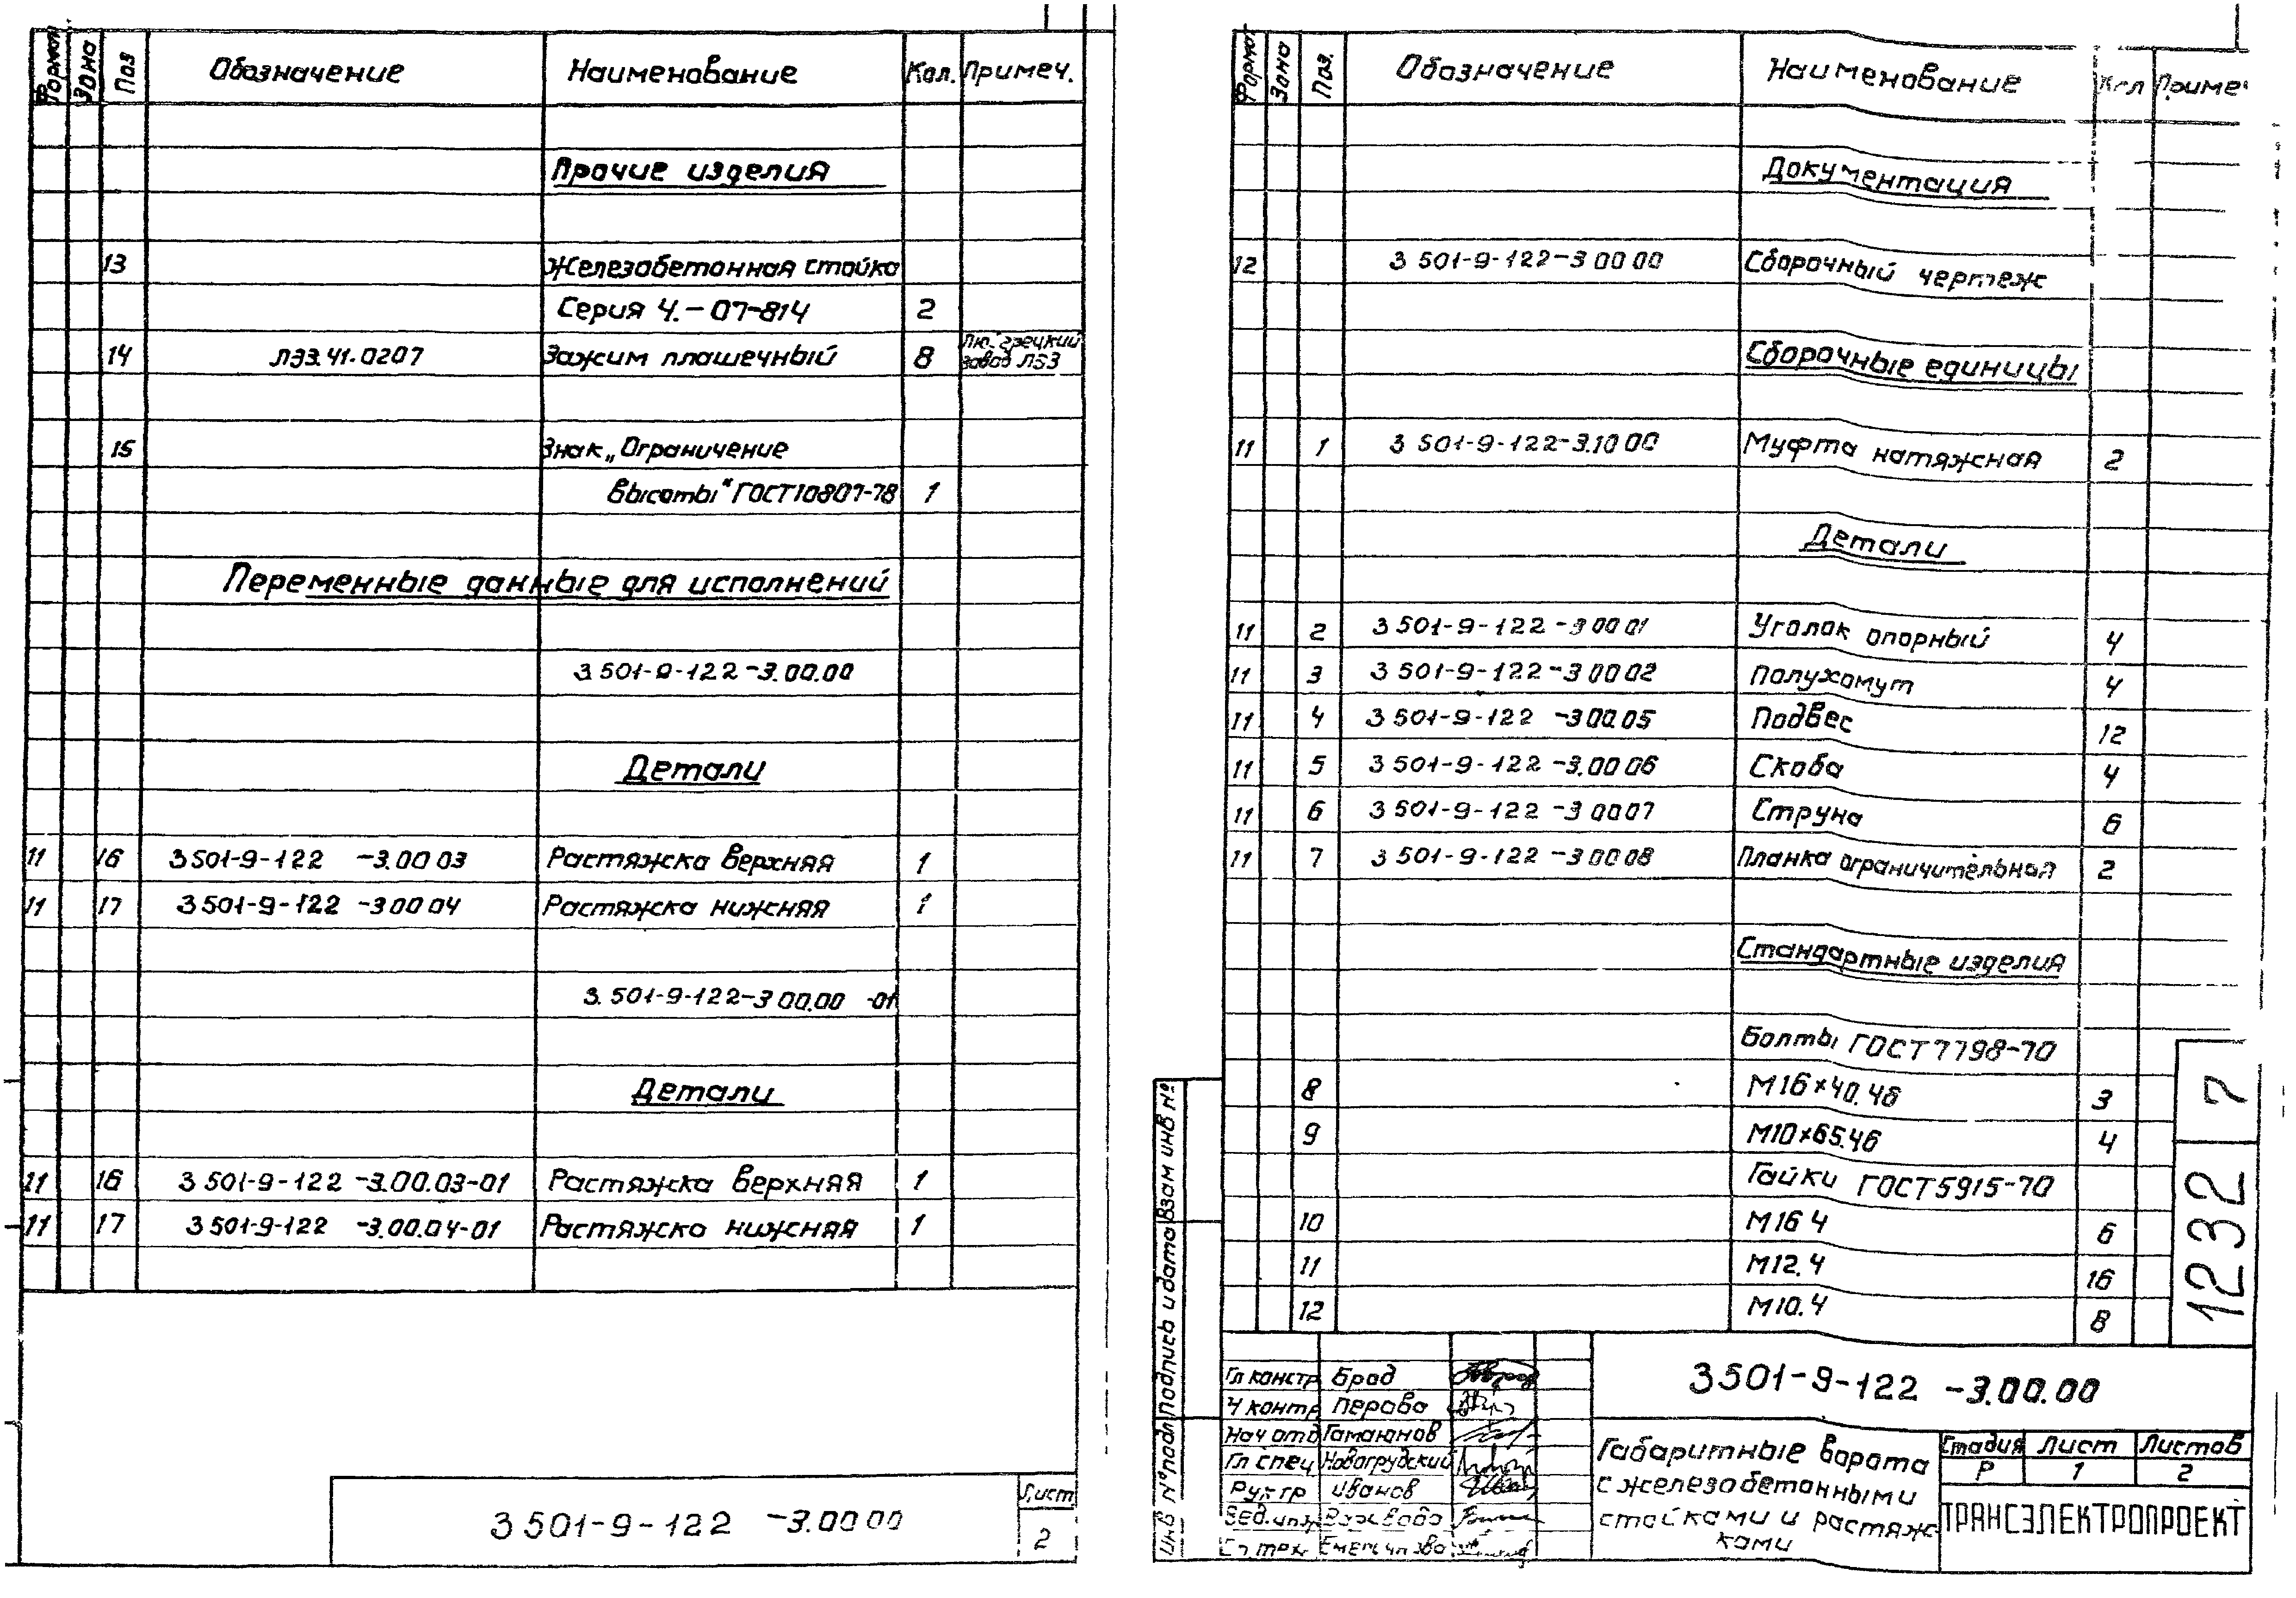 Формат Зона Поз Обозначение Наименование Кол. Примеч.
Прочие изделия
13 Железобетонная стойка
Серия 4.-07-814 2
14 ЛЭЗ.41.0207 Зажим плашечный 8 завод ЛЭЗ
15 Знак „Ограничение
высоты" ГОСТ10807-78 1
Переменные данные для исполнений
3 501-9-122-3.00.00
Детали
11 16 3 501-9-122 -3.00 03 Растяжка верхняя 1
11 17 3 501-9-122 -3 00 04 Растяжка нижняя 1
3. 501-9-122-3 00.00 -01
Детали
11 16 3 501-9-122 -3.00.03-01 Растяжка верхняя 1
11 17 3 501-9-122 -3.00.04-01 Растяжка нижняя 1
3 501-9-122 -3.00 00
Лист
2
Формат Зона Поз. Обозначение Наименование Кол Примеч
Документация
12 3 501-9-122-3 00 00 Сборочный чертеж
Сборочные единицы
11 1 3 501-9-122-3.10 00 Муфта натяжная 2
Детали
11 2 3 501-9-122-3 00 01 Уголок опорный 4
11 3 3 501-9-122-3 00 02 Полухомут 4
11 4 3 501-9-122 -3 00.05 Подвес 12
11 5 3 501-9-122-3.00 06 Скоба 4
11 6 3 501-9-122-3 00 07 Струна 6
11 7 3 501-9-122-3 00 08 Планка ограничительная 2
Стандартные изделия
Болты ГОСТ 7798-70
8 М16×40.46 3
9 М10×65.46 4
Гайки ГОСТ 5915-70
10 М16 4 6
11 М12.4 16
12 М10.4 8
1232 7
Инв № подл Подпись и дата Взам инв №
3 501-9-122 -3.00.00
Гл констр Брод
Н контр Перова
Нач отд Гамаюнов
Гл спец Новогрудский
Рук гр Иванов
Вед.инж
Ст тех
Габаритные ворота
с железобетонными
стойками и растяж-
ками
Стадия Лист Листов
Р 1 2
ТРАНСЭЛЕКТРОПРОЕКТ